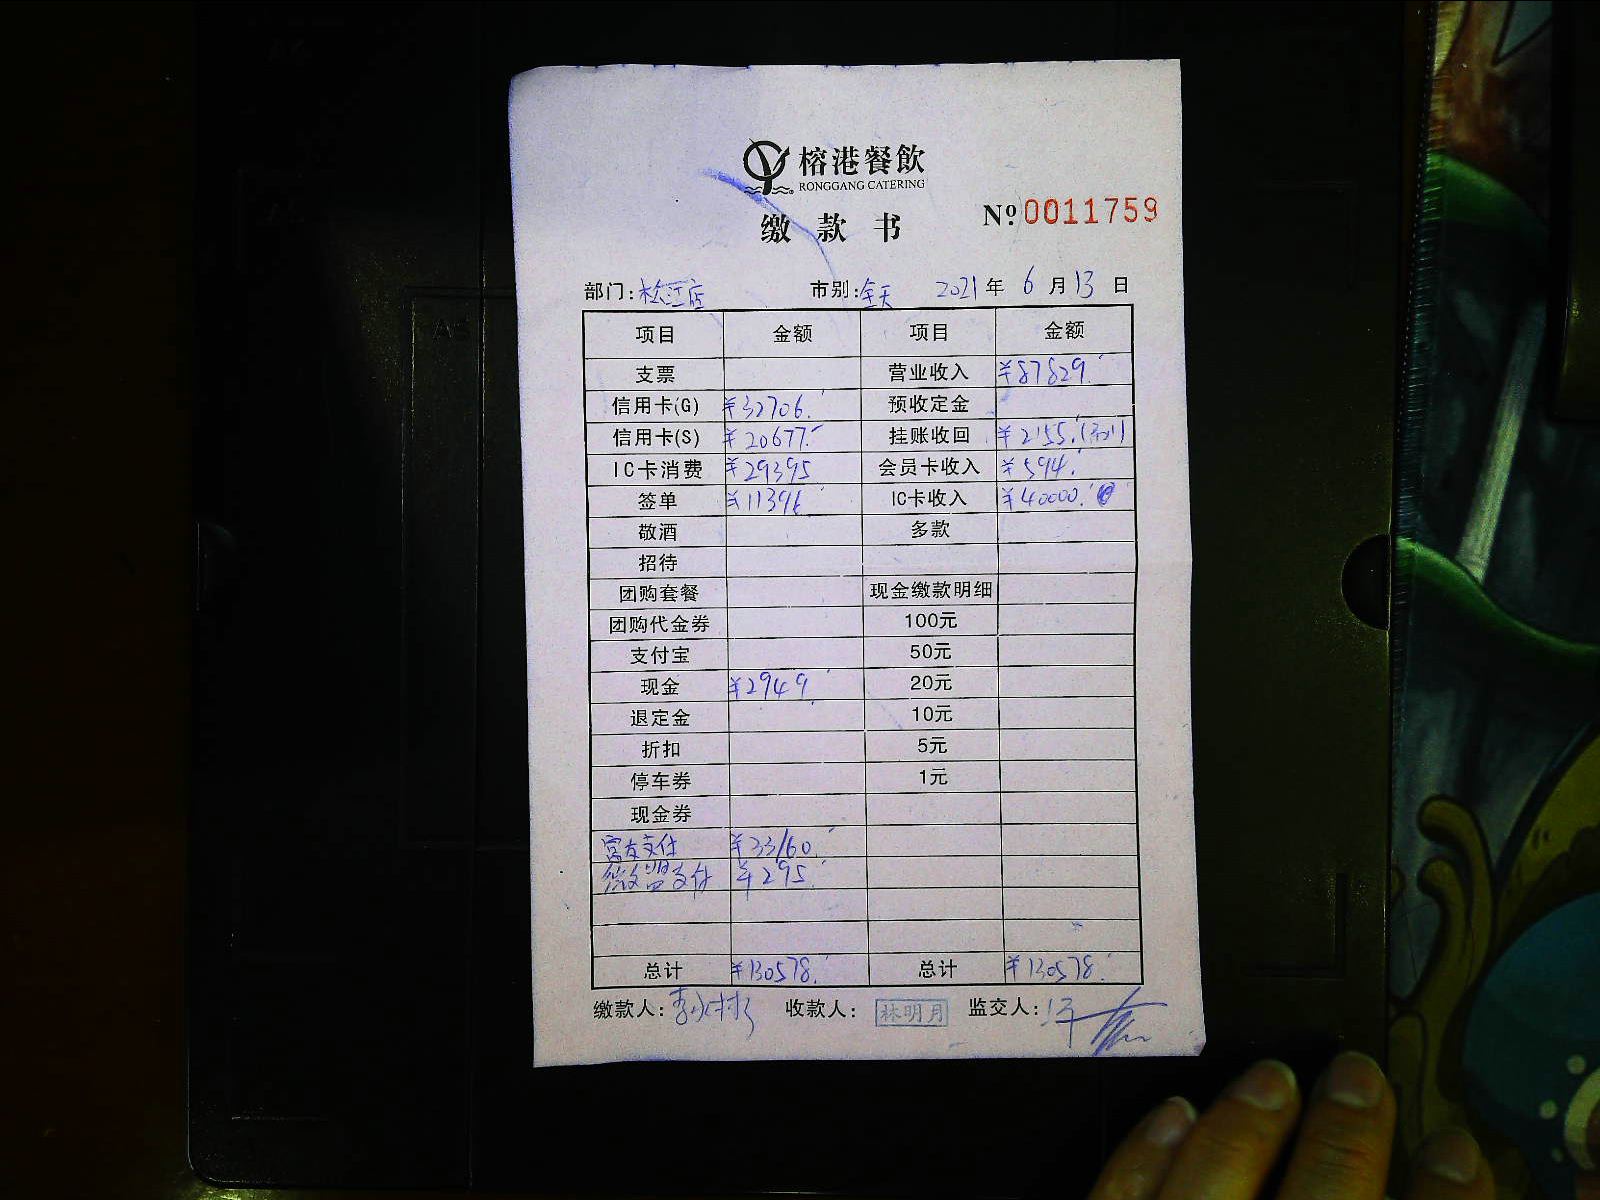 榕港餐飲
RONGGANG CATERING
缴款书 Nº 0011759
部门:松江店 市别:全天 2021年6月13日
项目 金额 项目 金额
支票 营业收入 ¥87829.
信用卡(G) ¥32706. 预收定金
信用卡(S) ¥20677. 挂账收回 ¥2155.
IC卡消费 ¥29395 会员卡收入 ¥594.
签单 ¥11396 IC卡收入 ¥40000.
敬酒 多款
招待
团购套餐 现金缴款明细
团购代金券 100元
支付宝 50元
现金 ¥2949. 20元
退定金 10元
折扣 5元
停车券 1元
现金券
富友支付 ¥33160.
微盟支付 ¥295.
总计 ¥130578. 总计 ¥130578.
缴款人: 收款人: 林明月 监交人: